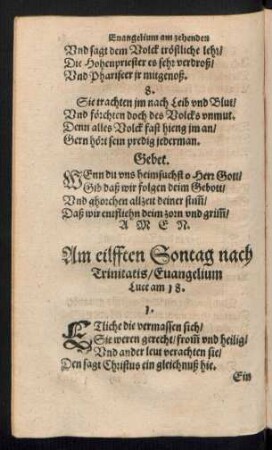 Euangelium am zehenden
Vnd sagt dem Volck tröstliche lehr/
Die Hohenpriester es sehr verdroß/
Vnd Phariseer jr mitgenoß.
8.
Sie trachten jm nach Leib vnd Blut/
Vnd förchten doch des Volcks vnmut.
Denn alles Volck fast hieng jm an/
Gern hört sein predig jederman.
Gebet.
WEnn du vns heimsuchst o Herr Gott/
Gib daß wir folgen deim Gebott/
Vnd ghorchen allzeit deiner stim̃/
Daß wir entfliehn deim zorn vnd grim̃/
A M E N.
Am eilfften Sontag nach
Trinitatis/Euangelium
Luce am 18.
1.
ETliche die vermassen sich/
Sie weren gerecht/ from̃ vnd heilig/
Vnd ander leut verachten sie/
Den sagt Christus ein gleichnuß hie.
Ein